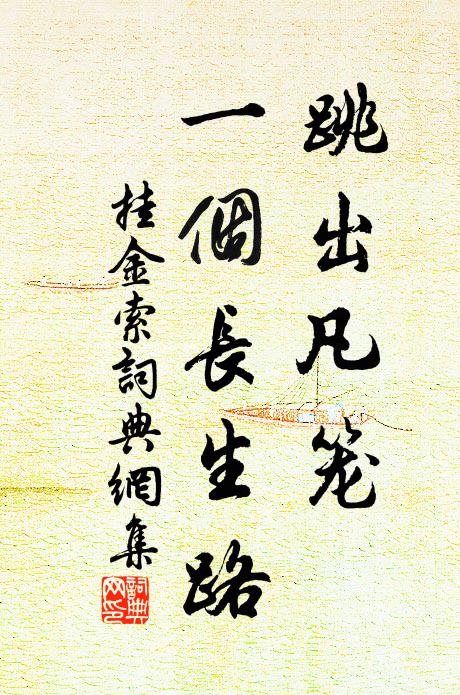 跳出凡笼
一個長生路
挂金索詞典網集
詞典
网印